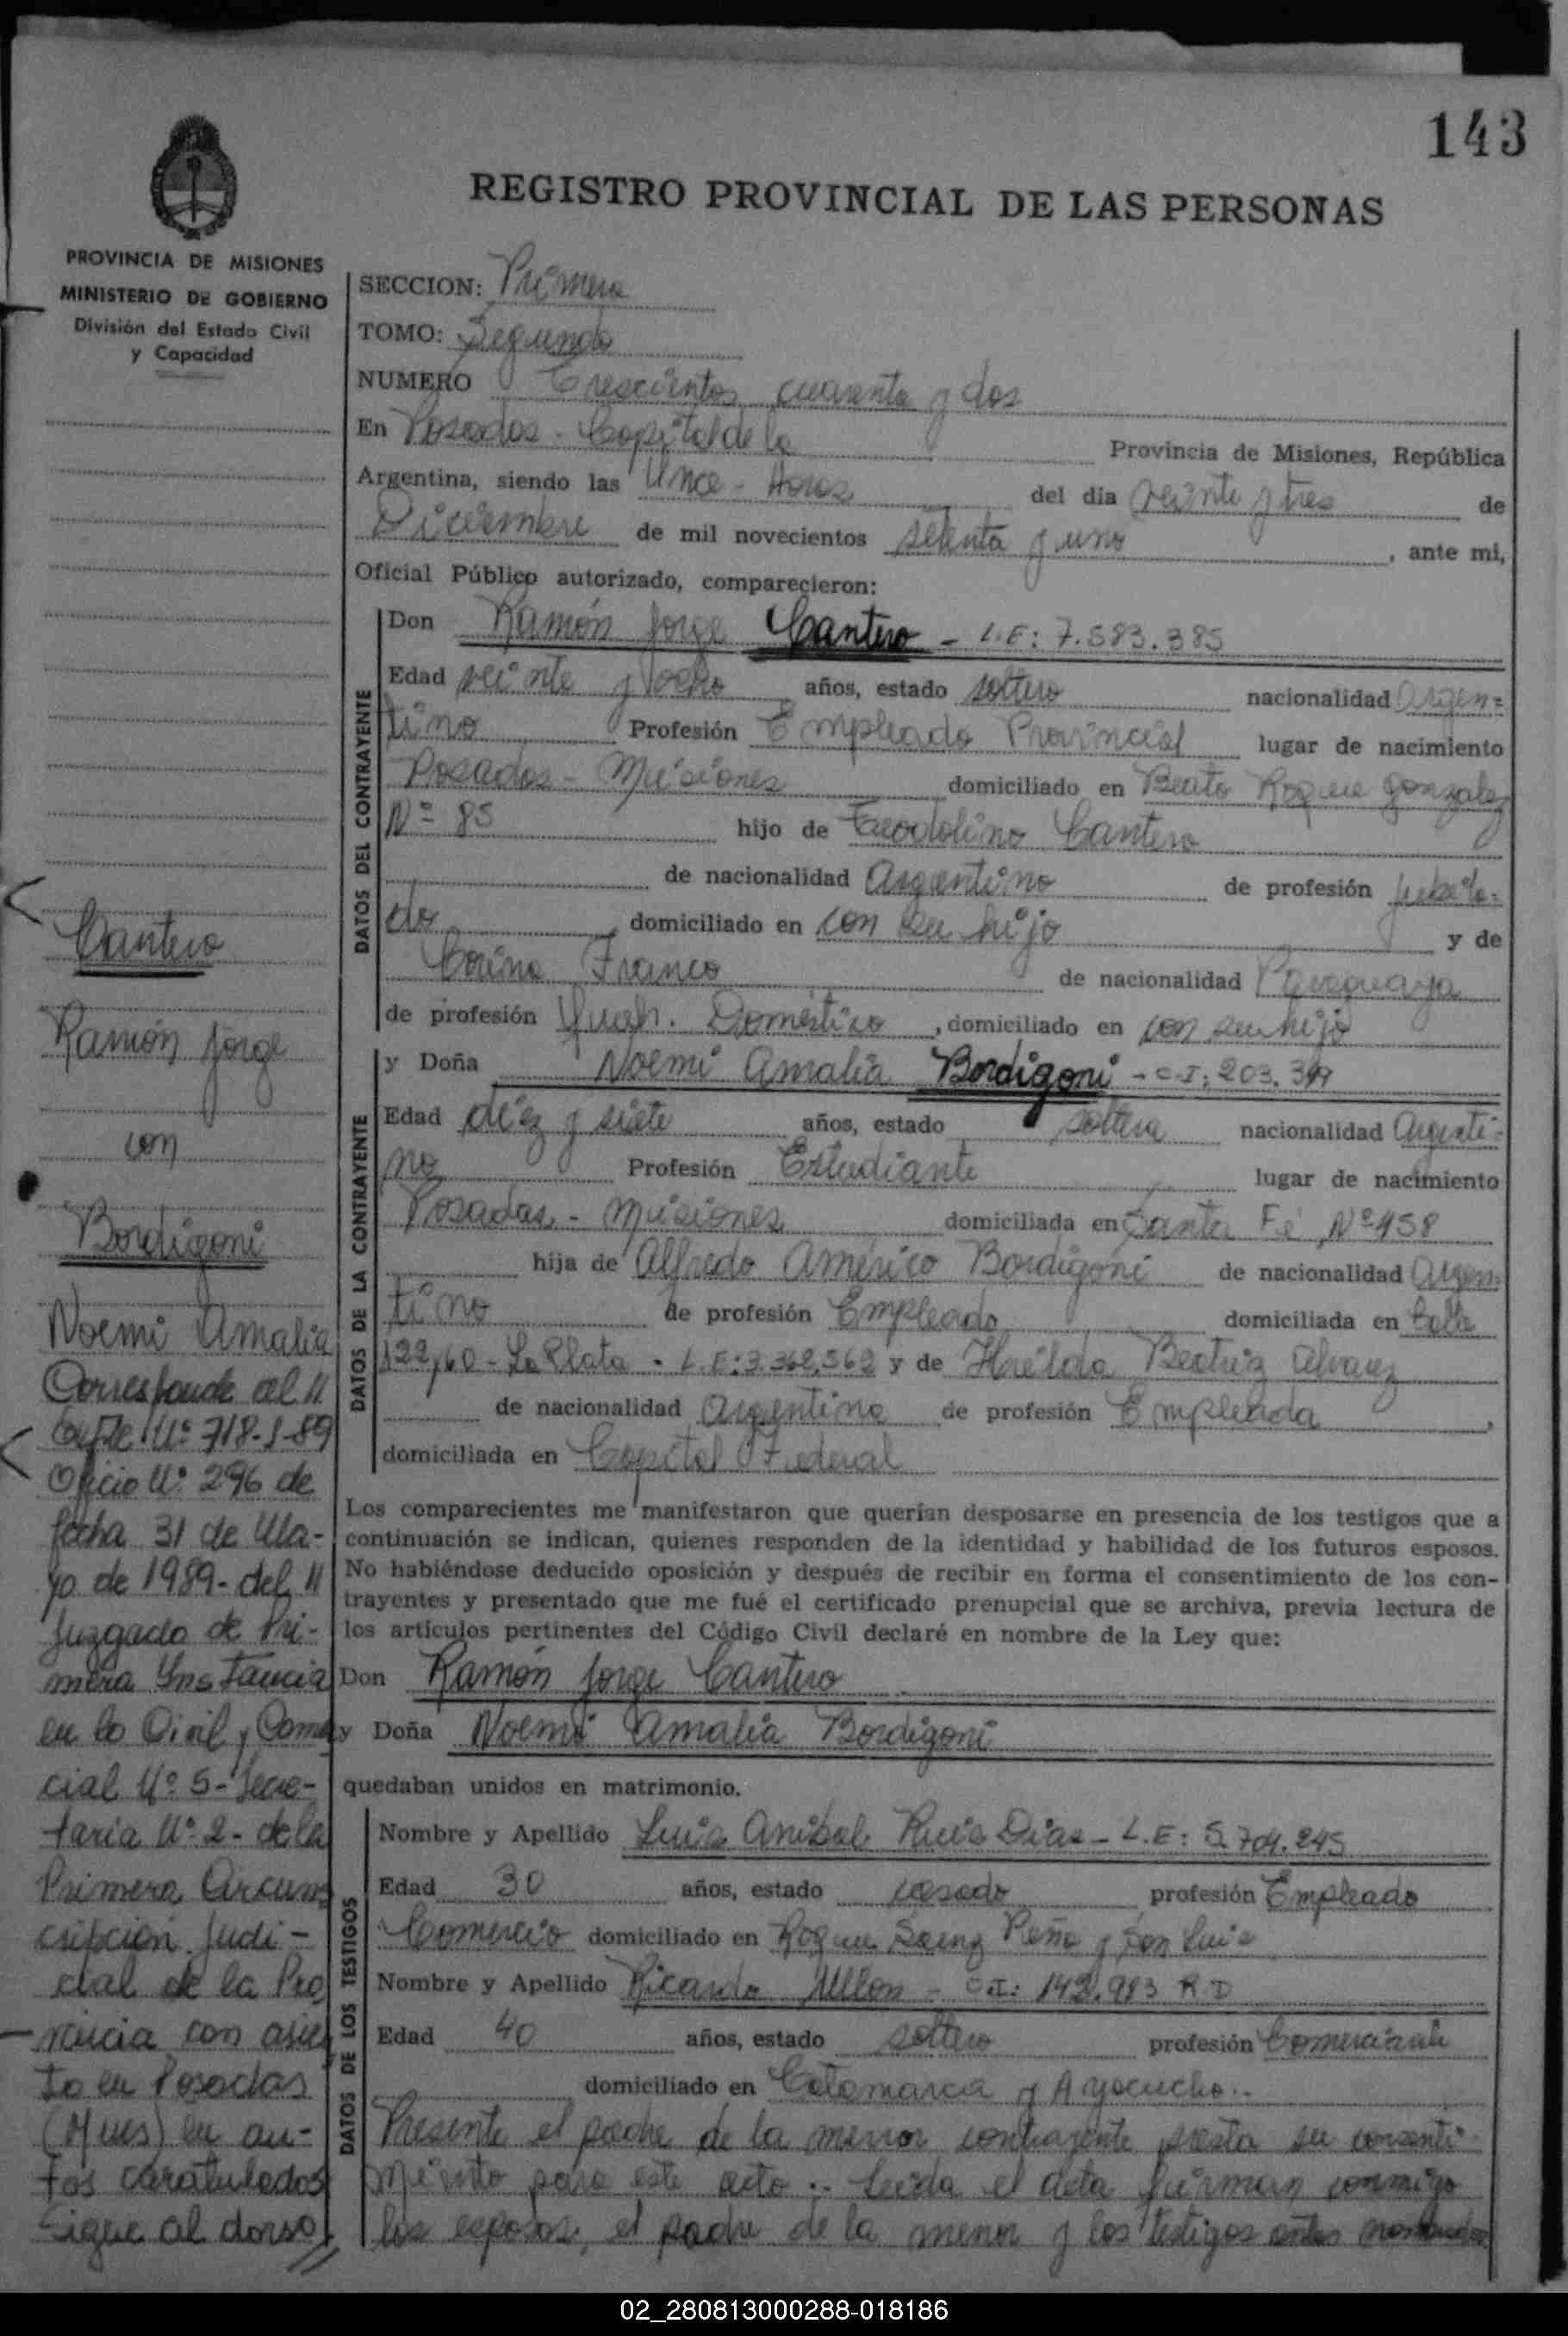 143
REGISTRO PROVINCIAL DE LAS PERSONAS
PROVINCIA DE MISIONES
MINISTERIO DE GOBIERNO
División del Estado Civil
y Capacidad
SECCION: Primera
TOMO: Segundo
NUMERO Trescientos cuarenta y dos
En Posadas - Capital de la Provincia de Misiones, República
Argentina, siendo las Once - Horas del dia veinte y tres de
Diciembre de mil novecientos setenta y uno, ante mi,
Oficial Público autorizado, comparecieron:
DATOS DEL CONTRAYENTE
Don Ramón Jorge Cantero - L.E: 7.583.385
Edad veinte y ocho años, estado soltero nacionalidad Argen=
tino Profesión Empleado Provincial lugar de nacimiento
Posadas - Misiones domiciliado en Beato Roque Gonzalez
Nº 85 hijo de Teodolino Cantero
de nacionalidad Argentino de profesión Jubila=
do, domiciliado en con su hijo y de
Corina Franco de nacionalidad Paraguaya
de profesión Queh. Doméstico, domiciliado en con su hijo
DATOS DE LA CONTRAYENTE
y Doña Noemi Amalia Bordigoni - C.I: 203.
Edad diez y siete años, estado soltera nacionalidad Argenti=
na Profesión Estudiante lugar de nacimiento
Posadas - Misiones domiciliada en Santa Fé Nº 458
hija de Alfredo Américo Bordigoni de nacionalidad Argen=
tino de profesión Empleado domiciliada en Calle
122, 60 - La Plata - L.E: 3.362.562 y de Hrilda Beatriz Alvarez
de nacionalidad Argentina de profesión Empleada,
domiciliada en Capital Federal
Los comparecientes me manifestaron que querían desposarse en presencia de los testigos que a
continuación se indican, quienes responden de la identidad y habilidad de los futuros esposos.
No habiéndose deducido oposición y después de recibir en forma el consentimiento de los con-
trayentes y presentado que me fué el certificado prenupcial que se archiva, previa lectura de
los artículos pertinentes del Código Civil declaré en nombre de la Ley que:
Don Ramón Jorge Cantero
y Doña Noemi Amalia Bordigoni
quedaban unidos en matrimonio.
DATOS DE LOS TESTIGOS
Nombre y Apellido Luis Anibal Ruis Dias - L.E: 5.704.245
Edad 30 años, estado casado profesión Empleado
Comercio domiciliado en Roque Saenz Peña y San Luis
Nombre y Apellido Ricardo Ullon - C.I: 142.983 R.D
Edad 40 años, estado soltero profesión Comerciante
domiciliado en Catamarca y Ayacucho.-
Presente el padre de la menor contrayente presta su consenti-
miento para este acto.- Leida el acta firman conmigo
los esposos, el padre de la menor y los testigos antes nombrados
Cantero
Ramón Jorge
con
Bordigoni
Noemi Amalia
Corresponde al //
Expte. Nº 718-J-89
Oficio Nº 296 de
fecha 31 de Ma-
yo de 1989- del //
Juzgado de Pri-
mera Instancia
en lo Civil y Comer
cial Nº 5- Secre-
taria Nº 2- de la
Primera Circuns
cripción Judi-
cial de la Pro
vincia con asien
to en Posadas
(Mnes) en au-
tos caratulados
Sigue al dorso//
02_280813000288-018186